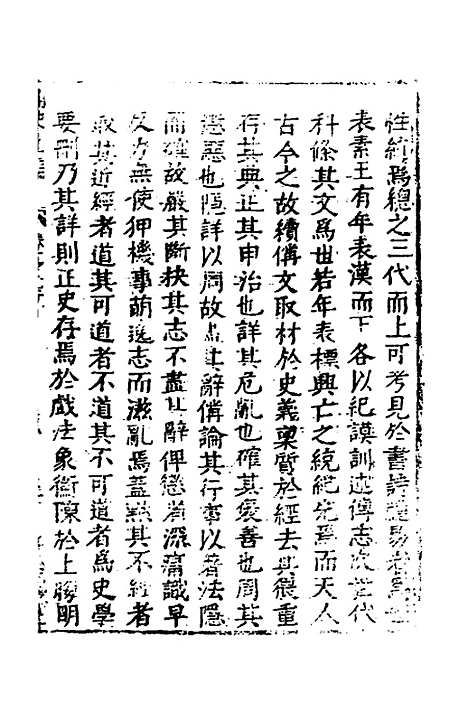 性續爲總之三代而上可考見於書詩禮易者爲
表素王有年表漢而下各以紀謨訓述傳志次世代
科條其文爲世若年表標興亡之統紀完焉而天人
古今之故續備文取材於史義稟質於經去其猥重
存其典正其申治也詳其危亂也確其爰善也周其
惡也隱詳以周故盡其辭備論其行事以著法隱
而確故嚴其斷抉其志不盡其辭俾懲者深痛識早
父方無使狎機事萌逸志而滋亂焉蓋黜其不經者
取其近經者道其可道者不道其不可道者爲史學
要刪乃其詳則正史存焉於戲法象衡陳於上勝明